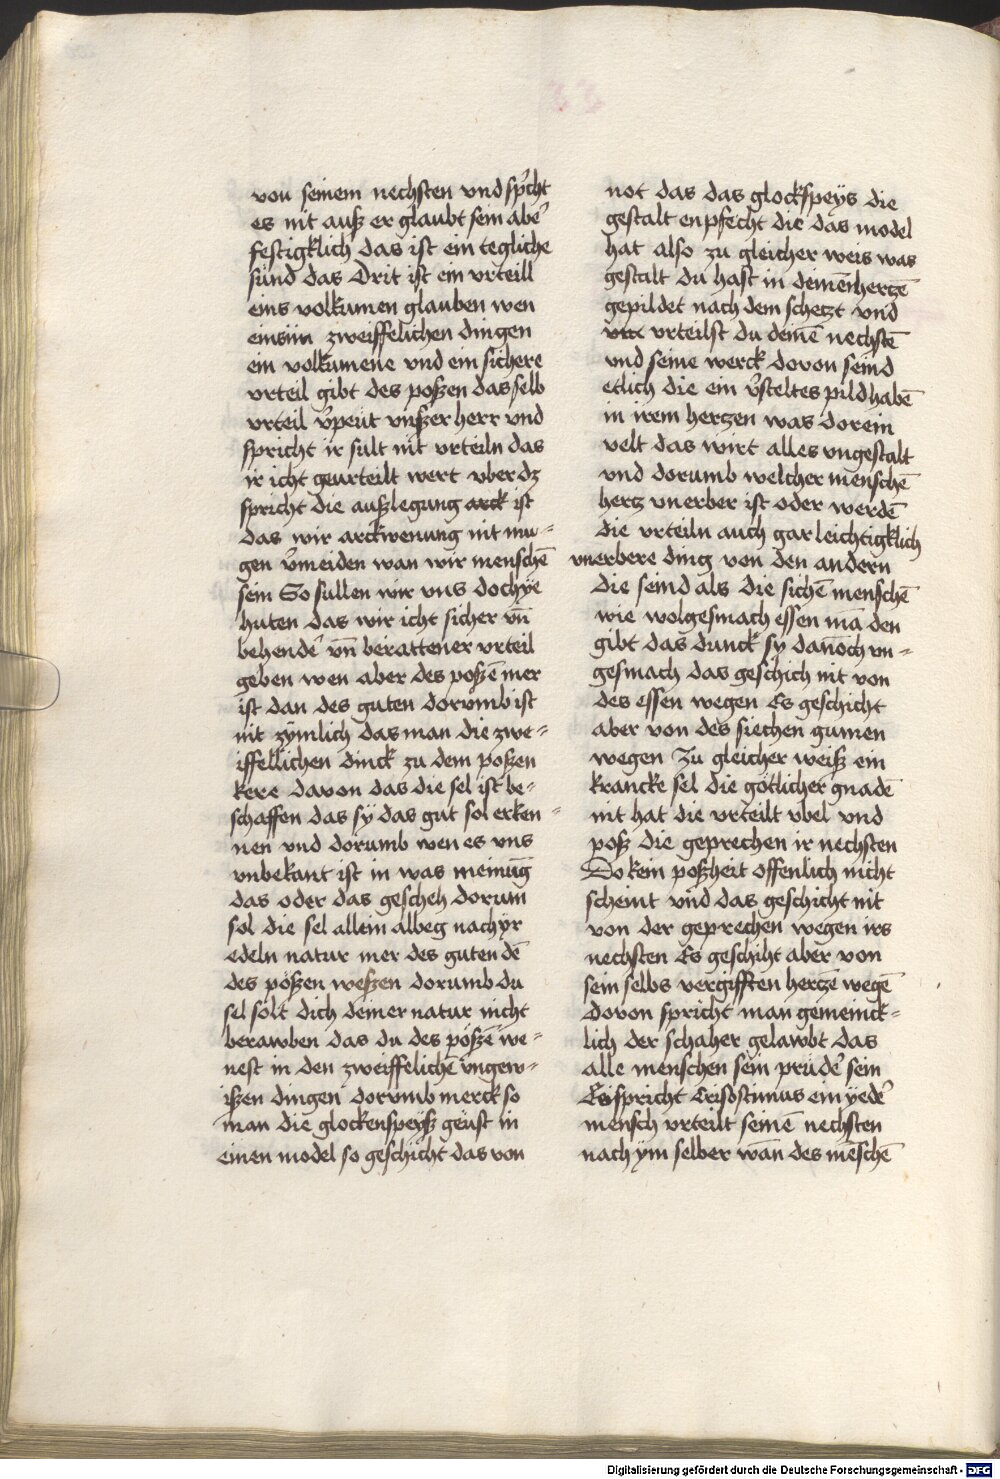 von seinem nechsten vnd sp̃cht
es nit auß er glaubt sein aber̃
festigklich das ist ein tegliche
sünd das drit ist ein vrteill
eins volkumen glauben wen
einsim zweiffelichen dingen
ein volkumene vnd ein sichere
vrteil gibt des poßen das selb
vrteil v̉peüt vnßer herr vnd
spricht ir sult nit vrteiln das
ir icht geurteilt wert vber dz
spricht die außlegung arck ist
das wir arckwenung nit mu-
gen v̉meiden wan wir menschē
sein So sullen wir vns doch ye
huten das wir icht sicher vn̄
behender̃ vn̄ berattener vrteil
geben wen aber des poßē mer
ist dan des guten dorumb ist
nit zÿmlich das man die zwe-
iffellichen dinck zu dem poßen
kere davon das die sel ist be-
schaffen das sÿ das gut sol erken-
nen vnd dorumb wen es vns
vnbekant ist in was meinūg
das oder das gescheh dorum
sol die sel allein albeg nach ÿr
edeln natur mer des guten dē
des poßen weßen dorumb du
sel solt dich deiner natur nicht
berawben das du des poßē we-
nest in den zweiffelichē vngew-
ißen dingen dorumb merck so
man die glockenspeyß geust in
einen model so geschicht das von
not das das glockspeÿs die
gestalt enpfecht die das model
hat also zu gleicher weis was
gestalt du hast in deinē hertzē
gepildet nach dem schetzt vnd
vrteilst du deinē nechstē
vnd seine werck dovon seind
etlich die ein v̉steltes pild habē
in irem hertzen was dorein
velt das wirt alles vngestalt
vnd dorumb welcher menschē
hertz vnerber ist oder werdē
die vrteiln auch gar leichtigklich
vnerbere ding von den andern
die seind als die sichē menschē
wie wolgesmach essen mā den
gibt das dunck sy dānoch vn-
gesmach das geschich nit von
des essen wegen Es geschicht
aber von des siechen gumen
wegen Zu gleicher weiß ein
krancke sel die gotlicher gnadē
nit hat die vrteilt vbel vnd
poß die geprechen ir nechsten
Do kein poßheit offenlich nicht
scheint vnd das geschicht nit
von der geprechen wegen irs
nechsten Es geschiht aber von
sein selbs vergifften hertzē wegē
dovon spricht man gemeinck-
lich der schaher gelawbt das
alle menschen sein prüder̃ sein
Es spricht Crisostimus ein ÿeder̃
mensch vrteilt seinē nechsten
nach ÿm selber wān des meschē
Digitalisierung gefördert durch die Deutsche Forschungsgemeinschaft - DFG